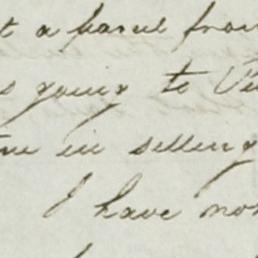 t a parcel from
s going to
in selling
I have